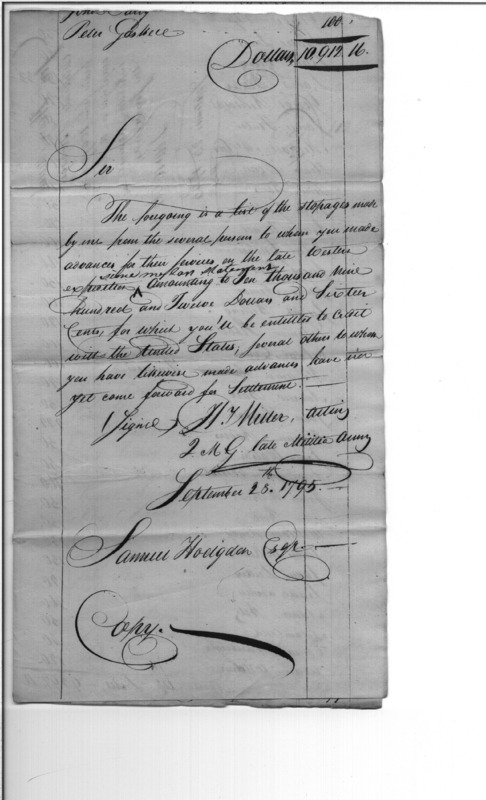 100.
Peter
Dollars, 10.912. 16.
Sir
The foregoing is a list of the stopages made
by me from the several persons to whom you made
advances for their services in the late Western
since my last Statement
expedition ^ Amounting to Ten thousand Nine
hundred and Twelve Dollars and Sixteen
Cents, for which you'll be entitled to Credit
with the United States, several others to whom
you have likewise made advances have not
yet come forward for Settlement.
(Signed) Miller, acting
Q M G. late Militia Army
September 23.th 1795.
Samuel Hodgdon Esqr.
Copy.